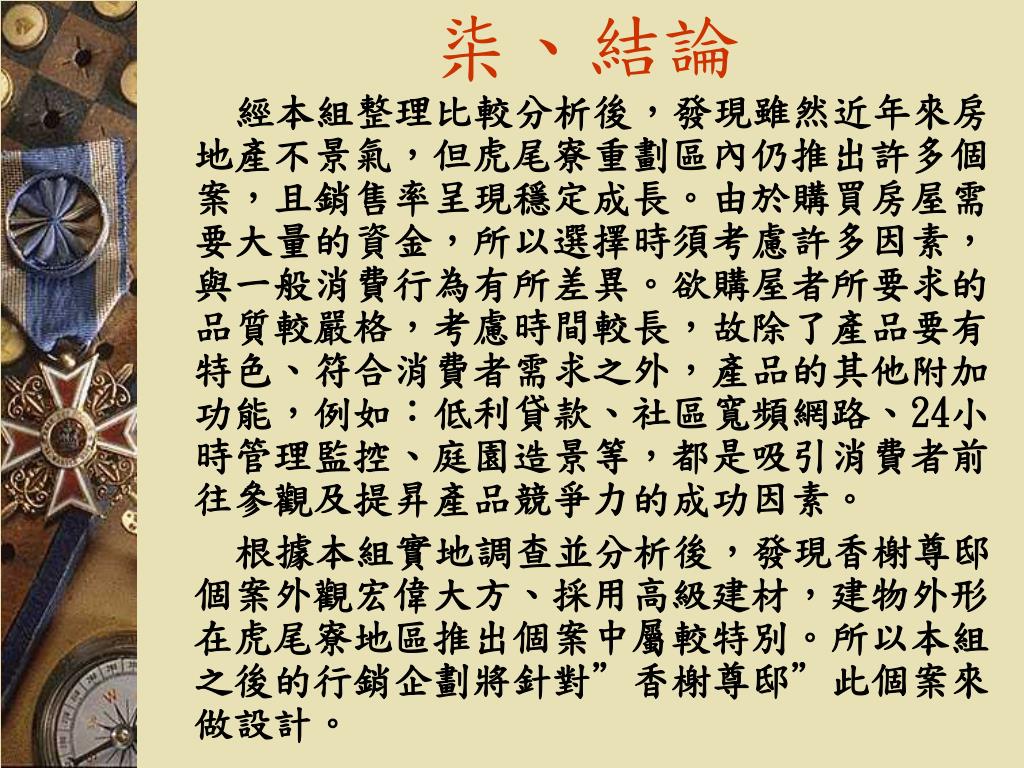 柒、結論
經本組整理比較分析後，發現雖然近年來房
地產不景氣，但虎尾寮重劃區內仍推出許多個
案，且銷售率呈現穩定成長。由於購買房屋需
要大量的資金，所以選擇時須考慮許多因素，
與一般消費行為有所差異。欲購屋者所要求的
品質較嚴格，考慮時間較長，故除了產品要有
特色、符合消費者需求之外，產品的其他附加
功能，例如：低利貸款、社區寬頻網路、24小
時管理監控、庭園造景等，都是吸引消費者前
往參觀及提昇產品競爭力的成功因素。
根據本組實地調查並分析後，發現香榭尊邸
個案外觀宏偉大方、採用高級建材，建物外形
在虎尾寮地區推出個案中屬較特別。所以本組
之後的行銷企劃將針對”香榭尊邸”此個案來
做設計。